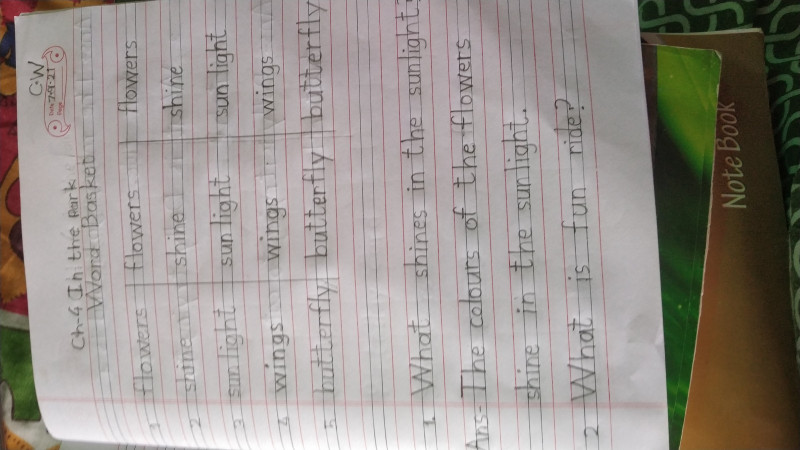 C.W
Ch-4 In the Park
Word Basket
1 flowers flowers flowers
2 shine shine shine
3 sunlight sunlight sunlight
4 wings wings wings
5 butterfly butterfly butterfly
1. What shines in the sunlight?
Ans- The colours of the flowers
shine in the sunlight.
2 What is fun ride?
Note Book